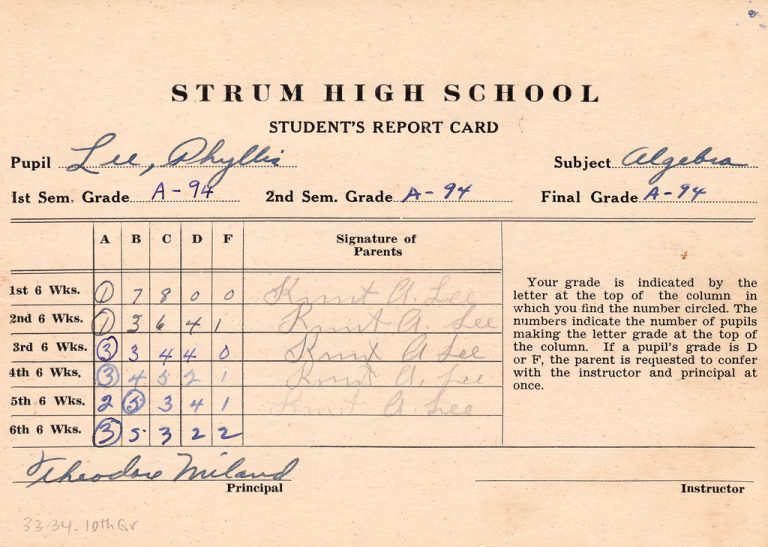 STRUM HIGH SCHOOL
STUDENT'S REPORT CARD
Pupil Lee, Phyllis Subject Algebra
1st Sem. Grade A-94 2nd Sem. Grade A-94 Final Grade A-94
A B C D F Signature of Parents
1st 6 Wks. 1 7 8 0 0 Knut A. Lee
2nd 6 Wks. 1 3 6 4 1 Knut A. Lee
3rd 6 Wks. 3 3 4 4 0 Knut A Lee
4th 6 Wks. 3 4 5 2 1 Knut A. Lee
5th 6 Wks. 2 5 3 4 1 Knut A. Lee
6th 6 Wks. 3 5 3 2 2
Your grade is indicated by the
letter at the top of the column in
which you find the number circled. The
numbers indicate the number of pupils
making the letter grade at the top of
the column. If a pupil's grade is D
or F, the parent is requested to confer
with the instructor and principal at
once.
Theodore Miland
Principal Instructor
33-34-10th Gr